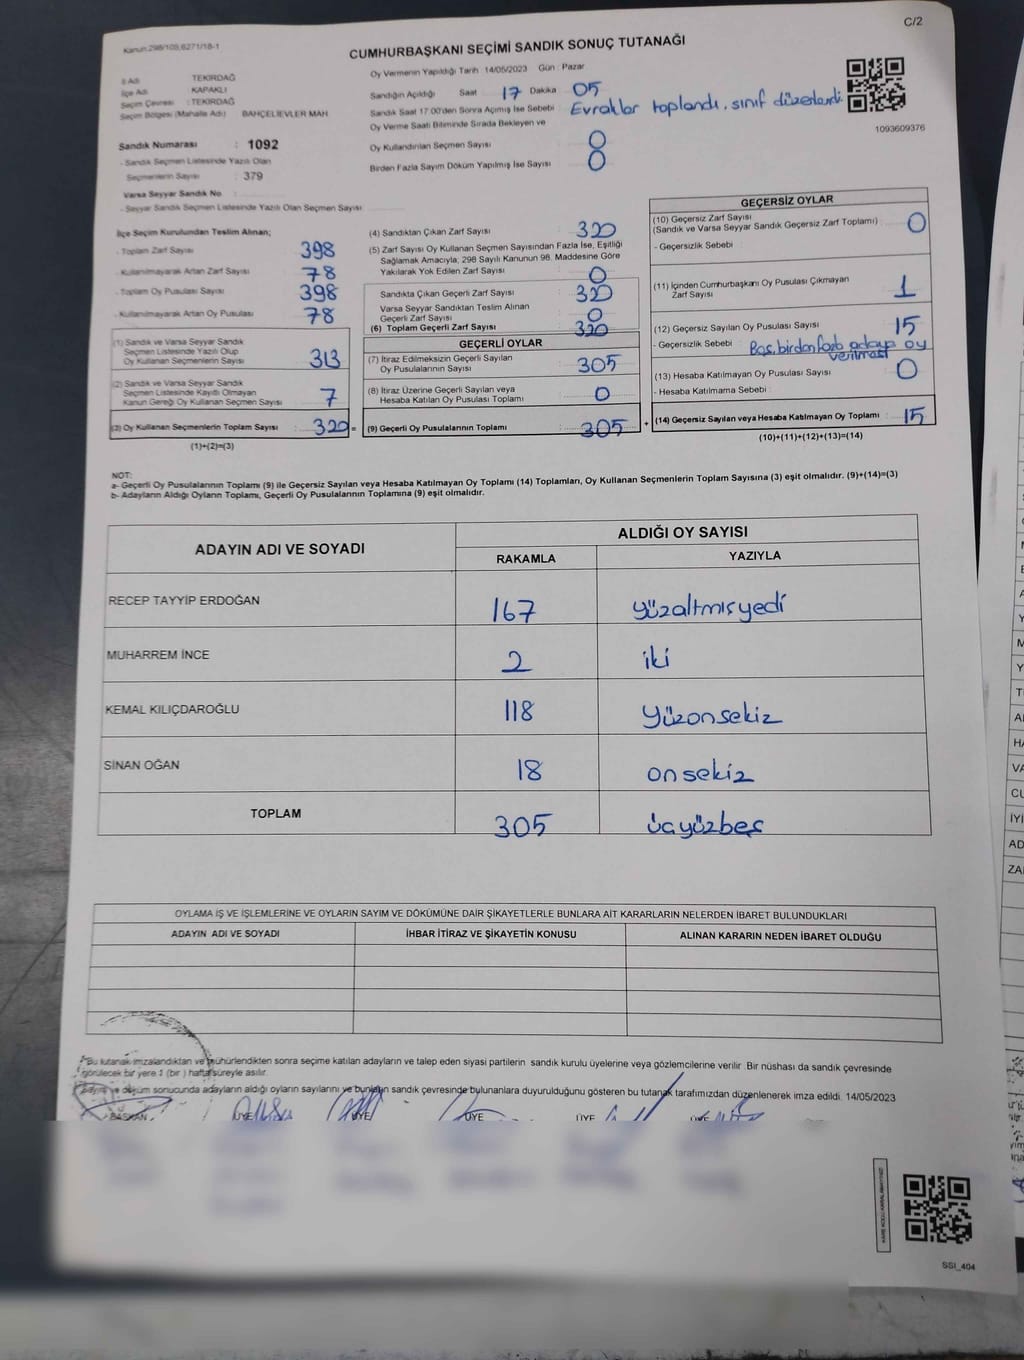 C/2
Kanun:298/109,6271/18-1
CUMHURBAŞKANI SEÇİMİ SANDIK SONUÇ TUTANAĞI
Oy Vermenin Yapıldığı Tarih 14/05/2023 Gün : Pazar
İl Adı TEKİRDAĞ
İlçe Adı : KAPAKLI
Seçim Çevresi : TEKİRDAĞ
Seçim Bölgesi (Mahalle Adı) BAHÇELİEVLER MAH
Sandığın Açıldığı Saat 17 Dakika 05
Sandık Saat 17:00'den Sonra Açılmış İse Sebebi Evraklar toplandı, sınıf düzenlendi
Oy Verme Saati Bitiminde Sırada Bekleyen ve
Oy Kullandırılan Seçmen Sayısı 0
Birden Fazla Sayım Döküm Yapılmış İse Sayısı 0
1093609376
Sandık Numarası : 1092
- Sandık Seçmen Listesinde Yazılı Olan
Seçmenlerin Sayısı : 379
Varsa Seyyar Sandık No
- Seyyar Sandık Seçmen Listesinde Yazılı Olan Seçmen Sayısı
İlçe Seçim Kurulundan Teslim Alınan;
- Toplam Zarf Sayısı 398
- Kullanılmayarak Artan Zarf Sayısı 78
- Toplam Oy Pusulası Sayısı 398
- Kullanılmayarak Artan Oy Pusulası 78
(1) Sandık ve Varsa Seyyar Sandık
Seçmen Listesinde Yazılı Olup
Oy Kullanan Seçmenlerin Sayısı 313
(2) Sandık ve Varsa Seyyar Sandık
Seçmen Listesinde Kayıtlı Olmayan
Kanun Gereği Oy Kullanan Seçmen Sayısı 7
(3) Oy Kullanan Seçmenlerin Toplam Sayısı : 320 =
(1)+(2)=(3)
(4) Sandıktan Çıkan Zarf Sayısı : 320
(5) Zarf Sayısı Oy Kullanan Seçmen Sayısından Fazla İse, Eşitliği
Sağlamak Amacıyla, 298 Sayılı Kanunun 98. Maddesine Göre
Yakılarak Yok Edilen Zarf Sayısı : 0
Sandıkta Çıkan Geçerli Zarf Sayısı : 320
Varsa Seyyar Sandıktan Teslim Alınan
Geçerli Zarf Sayısı : 0
(6) Toplam Geçerli Zarf Sayısı : 320
GEÇERLİ OYLAR
(7) İtiraz Edilmeksizin Geçerli Sayılan
Oy Pusulalarının Sayısı : 305
(8) İtiraz Üzerine Geçerli Sayılan veya
Hesaba Katılan Oy Pusulası Toplamı : 0
(9) Geçerli Oy Pusulalarının Toplamı : 305 +
GEÇERSİZ OYLAR
(10) Geçersiz Zarf Sayısı
(Sandık ve Varsa Seyyar Sandık Geçersiz Zarf Toplamı) : 0
- Geçersizlik Sebebi
(11) İçinden Cumhurbaşkanı Oy Pusulası Çıkmayan
Zarf Sayısı : 1
(12) Geçersiz Sayılan Oy Pusulası Sayısı : 15
- Geçersizlik Sebebi : Boş, birden fazla adaya oy
verilmesi
(13) Hesaba Katılmayan Oy Pusulası Sayısı : 0
- Hesaba Katılmama Sebebi :
(14) Geçersiz Sayılan veya Hesaba Katılmayan Oy Toplamı : 15
(10)+(11)+(12)+(13)=(14)
NOT:
a- Geçerli Oy Pusulalarının Toplamı (9) ile Geçersiz Sayılan veya Hesaba Katılmayan Oy Toplamı (14) Toplamları, Oy Kullanan Seçmenlerin Toplam Sayısına (3) eşit olmalıdır. (9)+(14)=(3)
b- Adayların Aldığı Oyların Toplamı, Geçerli Oy Pusulalarının Toplamına (9) eşit olmalıdır.
ADAYIN ADI VE SOYADI ALDIĞI OY SAYISI
RAKAMLA YAZIYLA
RECEP TAYYİP ERDOĞAN 167 yüzaltmışyedi
MUHARREM İNCE 2 iki
KEMAL KILIÇDAROĞLU 118 yüzonsekiz
SİNAN OĞAN 18 onsekiz
TOPLAM 305 üçyüzbeş
OYLAMA İŞ VE İŞLEMLERİNE VE OYLARIN SAYIM VE DÖKÜMÜNE DAİR ŞİKAYETLERLE BUNLARA AİT KARARLARIN NELERDEN İBARET BULUNDUKLARI
ADAYIN ADI VE SOYADI İHBAR İTİRAZ VE ŞİKAYETİN KONUSU ALINAN KARARIN NEDEN İBARET OLDUĞU
Bu tutanak imzalandıktan ve mühürlendikten sonra seçime katılan adayların ve talep eden siyasi partilerin sandık kurulu üyelerine veya gözlemcilerine verilir. Bir nüshası da sandık çevresinde
görülecek bir yere 1 (bir ) hafta süreyle asılır.
Sayım ve döküm sonucunda adayların aldığı oyların sayılarını ve bunların sandık çevresinde bulunanlara duyurulduğunu gösteren bu tutanak tarafımızdan düzenlenerek imza edildi. 14/05/2023
BAŞKAN ÜYE ÜYE ÜYE ÜYE ÜYE
SSI_404